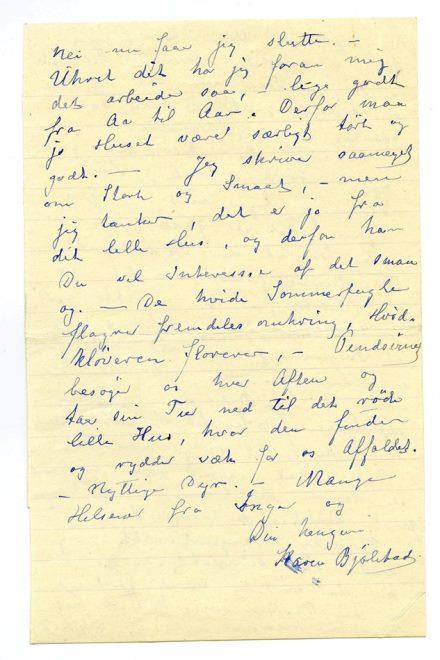 Nei nu faar jeg slutte. –
Uhret dit har jeg foran mig,
det arbeider saa, – lige godt
fra Aar til Aar. Derfor maa
jo Huset været særligt tørt og
godt. – Jeg skriver saameget
om Stort og Smaat, – men
jeg tænker, det er jo fra
dit lille Hus, og derfor har
Du vel Interesse af det smaa
og. – De hvide Sommerfugle
flagrer fremdeles omkring, Hvid-
kløveren florerer, – Pindsvinet
besøger os hver Aften og
taar sin Tur ned til det røde
lille Hus, hvor den finder
og rydder væk for os Affaldet.
– Nyttige Dyr. – Mange
Hilsener fra Inger og
Din hengivne
Karen Bjølstad.